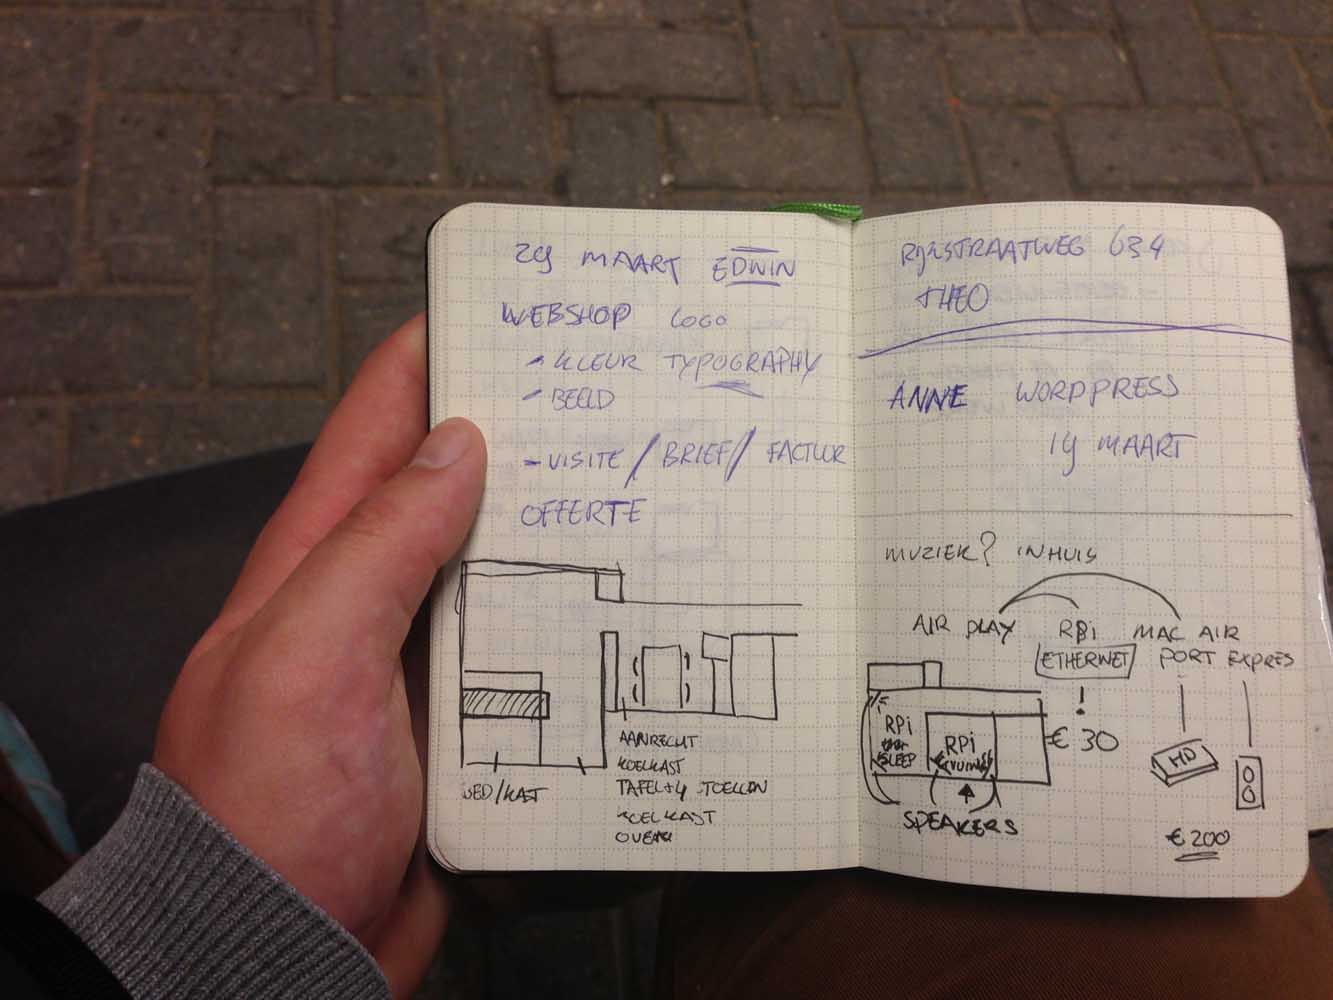 29 MAART EDWIN
WEBSHOP LOGO
- KLEUR TYPOGRAPHY
- BEELD
- VISITE / BRIEF / FACTUUR
OFFERTE
BED/KAST
AANRECHT
KOELKAST
TAFEL+4 STOELEN
KOELKAST
OVEN
RIJKSTRAATWEG 634
THEO
ANNE WORDPRESS
19 MAART
MUZIEK? INHUIS
AIR PLAY RPi MAC AIR
ETHERNET PORT EXPRES
!
€ 30
RPi
SLEEP
RPi
SPEAKERS
HD
€ 200